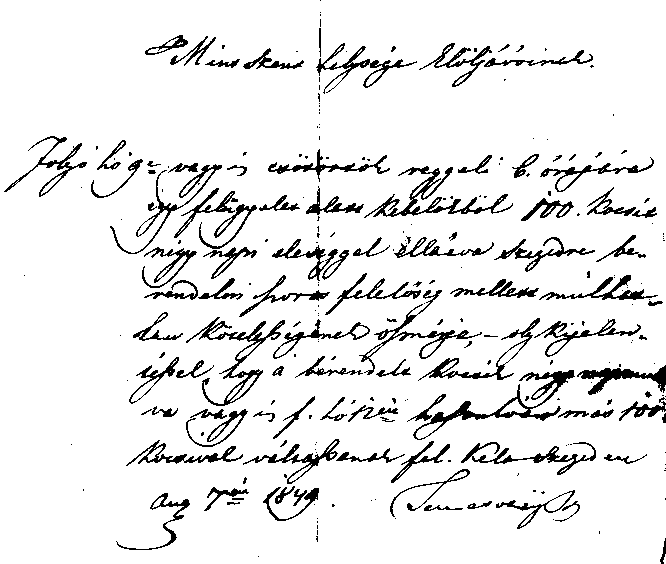 Minszent helysége Elöljáróinak.
Folyó hó 9én vagyis csötörtök reggeli 6. órájára
egy felügyelet alatt kebelétből 100. kocsit
négy napi eleséggel ellátva Szegedre be-
rendelni szoros felelőség mellett mulhat-
lan kötelességének ösmérje, – oly kijelen-
téssel, hogy a bérendelt kocsik
va vagyis f. hó 12én más 100
kocsival váltassanak fel. Kelt Szegeden
Aug 7én 1849.
Temesváry